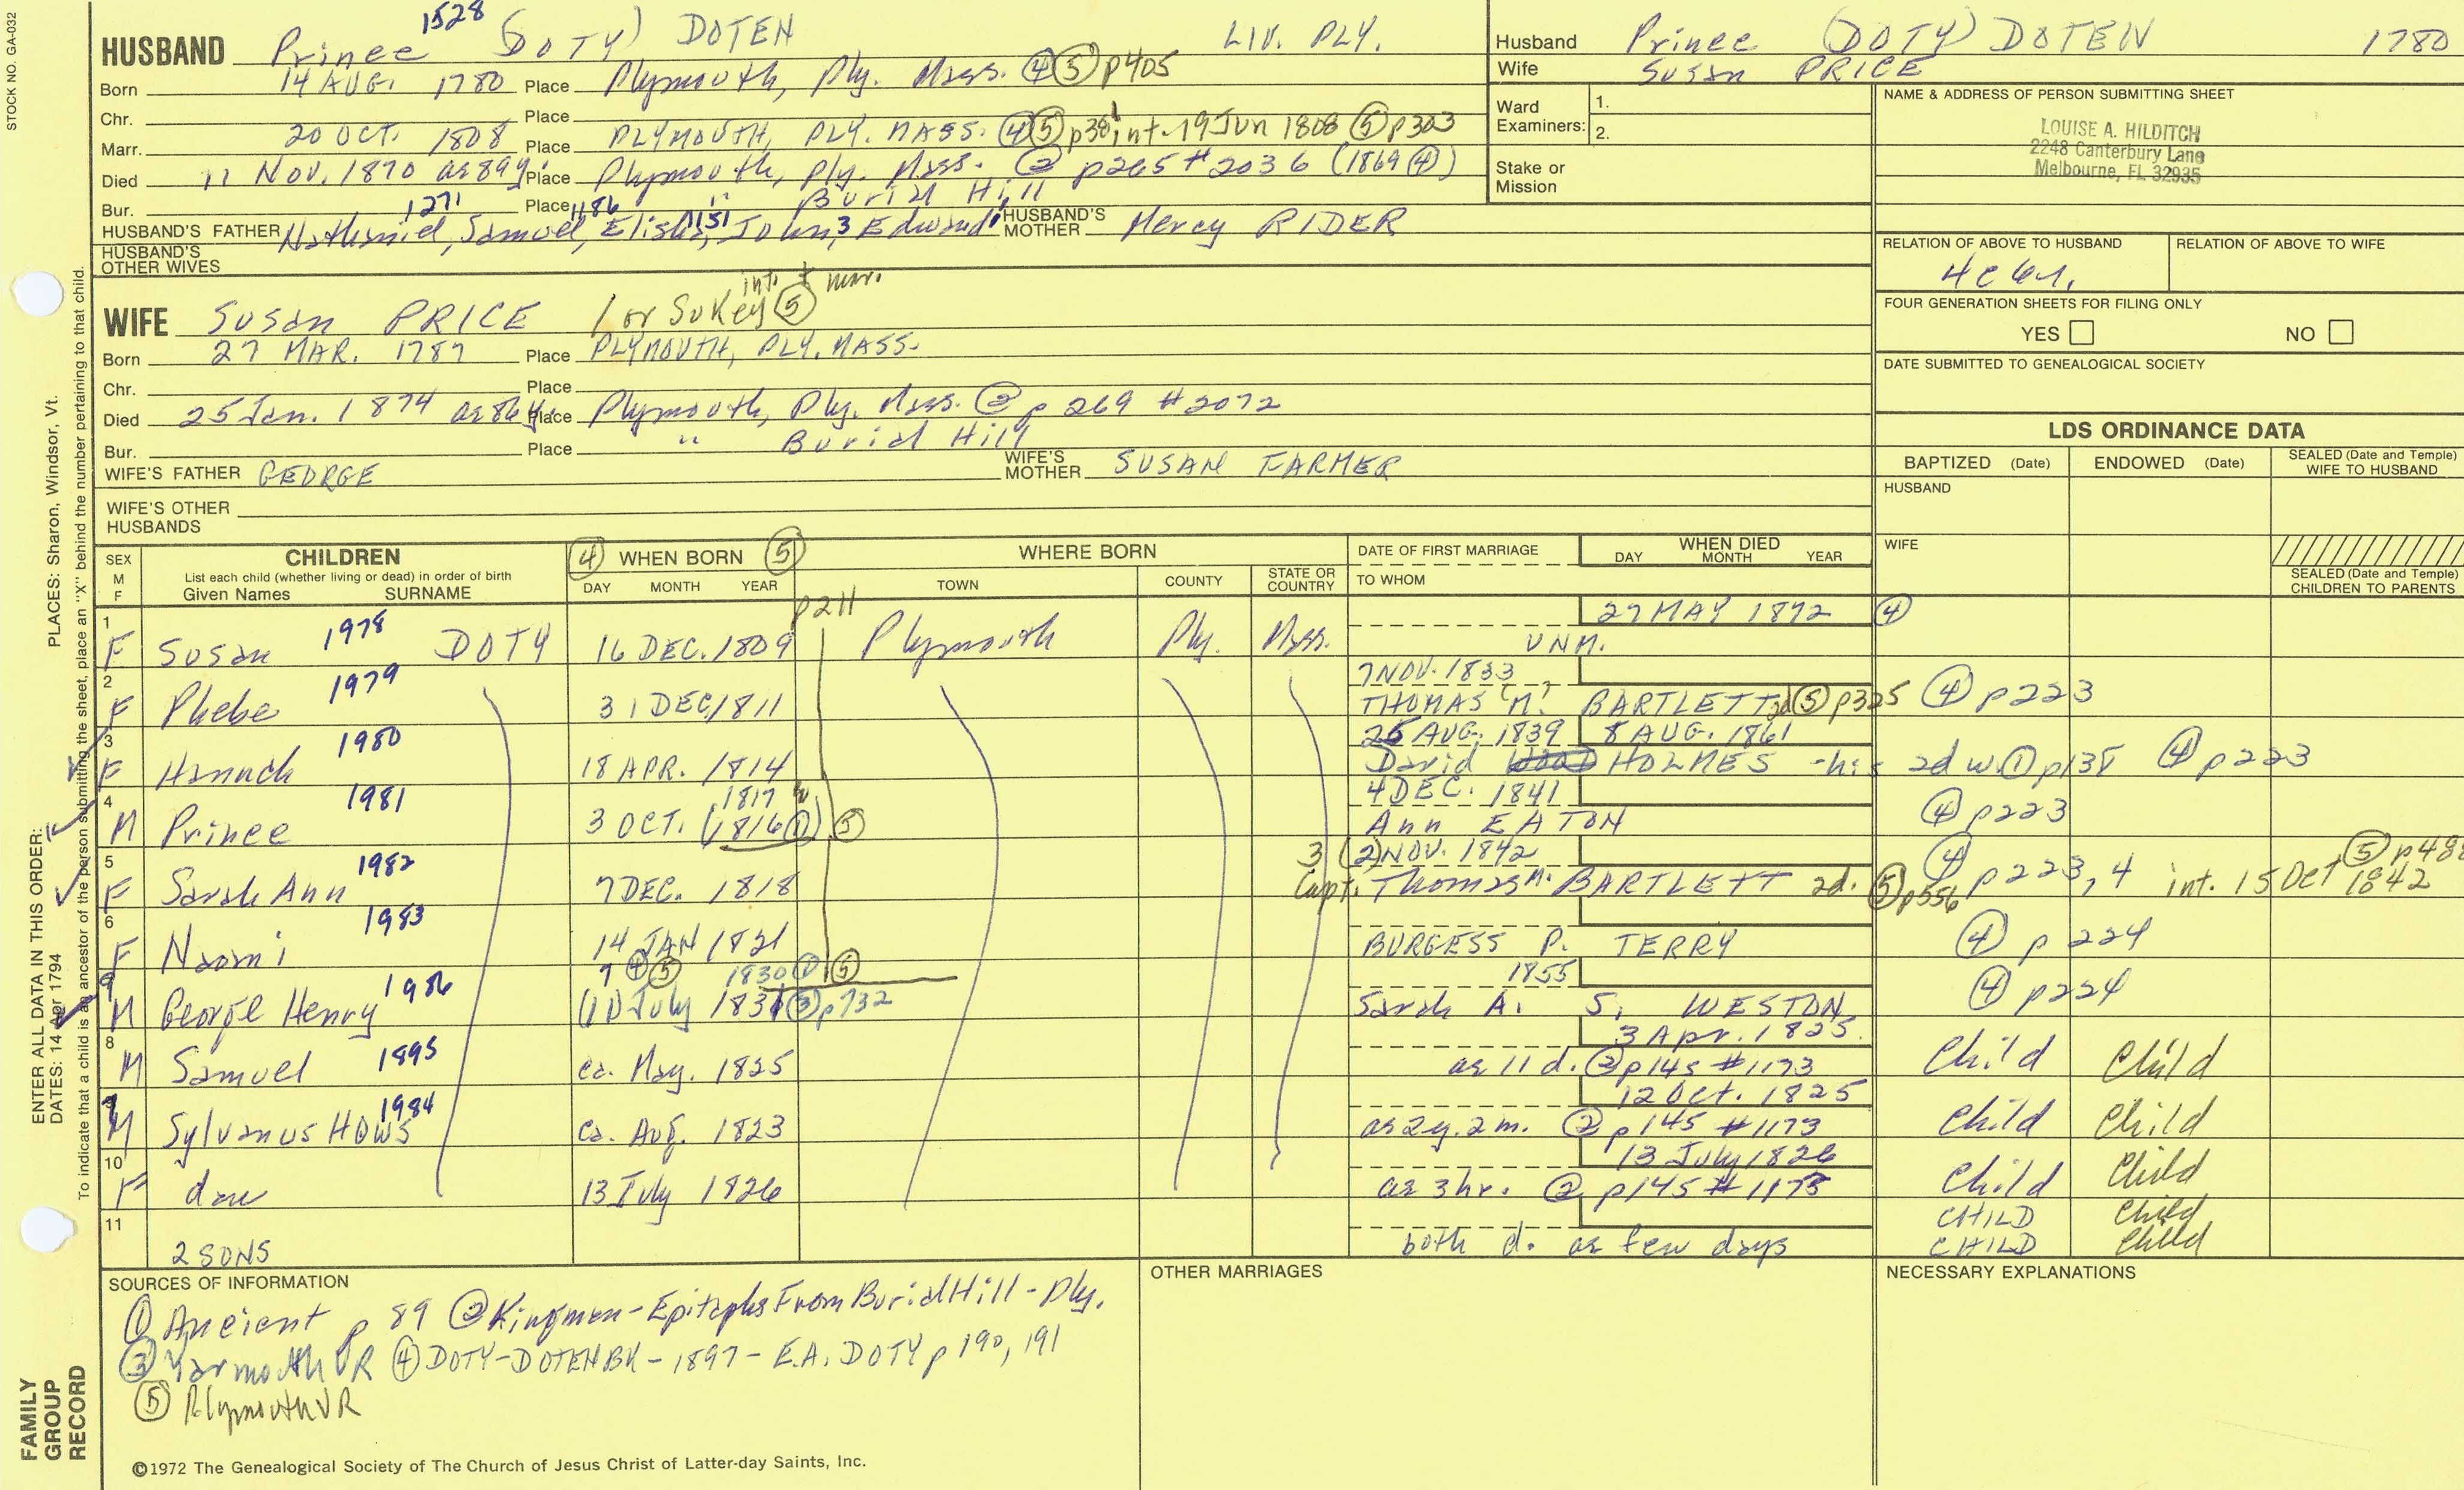 STOCK NO. GA-032
1528
HUSBAND Prince (DOTY) DOTEN LIV. PLY.
Born 14 AUG. 1780 Place Plymouth, Ply. Mass. ④⑤ p405
Chr. Place
Marr. 20 OCT. 1808 Place PLYMOUTH, PLY. MASS. ④⑤ int. 19 Jun 1808 ⑤ p303
Died 11 Nov. 1870 ae 89y. Place Plymouth, Ply. Mass. ② p265 #2036 (1869 ④)
Bur. Place " Burial Hill
1271 1186 1151 3 1
HUSBAND'S FATHER Nathaniel, Samuel, Elisha, John, Edward HUSBAND'S MOTHER Mercy RIDER
HUSBAND'S OTHER WIVES
Husband Prince (DOTY) DOTEN 1780
Wife Susan PRICE
Ward Examiners: 1.
2.
Stake or Mission
NAME & ADDRESS OF PERSON SUBMITTING SHEET
LOUISE A. HILDITCH
2248 Canterbury Lane
Melbourne, FL 32935
RELATION OF ABOVE TO HUSBAND RELATION OF ABOVE TO WIFE
FOUR GENERATION SHEETS FOR FILING ONLY
YES NO
DATE SUBMITTED TO GENEALOGICAL SOCIETY
int. & mar.
WIFE Susan PRICE / or Sukey ⑤
Born 27 MAR. 1787 Place PLYMOUTH, PLY. MASS.
Chr. Place
Died 25 Jan. 1874 ae 86y. Place Plymouth, Ply. Mass. ② p269 #2072
Bur. Place " Burial Hill
WIFE'S FATHER GEORGE WIFE'S MOTHER SUSAN FARMER
WIFE'S OTHER HUSBANDS
LDS ORDINANCE DATA
BAPTIZED (Date) ENDOWED (Date) SEALED (Date and Temple) WIFE TO HUSBAND
HUSBAND
WIFE
SEALED (Date and Temple) CHILDREN TO PARENTS
SEX M F
CHILDREN
List each child (whether living or dead) in order of birth
Given Names SURNAME
④ WHEN BORN ⑤
DAY MONTH YEAR
WHERE BORN
TOWN COUNTY STATE OR COUNTRY
DATE OF FIRST MARRIAGE
TO WHOM
WHEN DIED
DAY MONTH YEAR
p211
1 F Susan 1978 DOTY 16 DEC. 1809 Plymouth Ply. Mass. 27 MAY 1872 ④
UNM.
2 F Phebe 1979 31 DEC 1811 7 NOV. 1833
THOMAS "M." BARTLETT 2d ⑤ p325 ④ p223
3 F Hannah 1980 18 APR. 1814 25 AUG. 1839 8 AUG. 1861
David HOLMES - his 2d w. ① p138 ④ p223
4 M Prince 1981 3 OCT. 1817 (1816 ①) ⑤ 4 DEC. 1841
Ann EATON ④ p223
5 F Sarah Ann 1982 7 DEC. 1818 3 (2) NOV. 1842
Capt. Thomas M. BARTLETT 2d. ⑤ p556 ④ p223, 4 int. 15 Oct 1842 ⑤
6 F Naomi 1983 14 JAN 1821
BURGESS P. TERRY ④ p 224
M George Henry 1986 7 ④⑤ (11) July 1830 ① ⑤ 1831 ③ p732 1855
Sarah A. S. WESTON ④ p224
8 M Samuel 1895 ca. May. 1825 3 Apr. 1825.
ae 11 d. ② p145 #1173 Child Child
9 M Sylvanus HOWS 1984 ca. Aug. 1823 12 Oct. 1825
ae 2y. 2m. ② p145 #1173 Child Child
10 F dau 13 July 1826 13 July 1826
ae 3 hr. ② p145 #1173 Child Child
11 CHILD Child
2 SONS both d. ae few days CHILD Child
SOURCES OF INFORMATION
① Ancient p 89 ② Kingman - Epitaphs From Burial Hill - Ply.
③ Yarmouth VR ④ DOTY-DOTEN BK - 1897 - E.A. DOTY p 190, 191
⑤ Plymouth VR
OTHER MARRIAGES
NECESSARY EXPLANATIONS
©1972 The Genealogical Society of The Church of Jesus Christ of Latter-day Saints, Inc.
FAMILY GROUP RECORD
ENTER ALL DATA IN THIS ORDER:
DATES: 14 Apr 1794
PLACES: Sharon, Windsor, Vt.
To indicate that a child is an ancestor of the person submitting the sheet, place an "X" behind the number pertaining to that child.